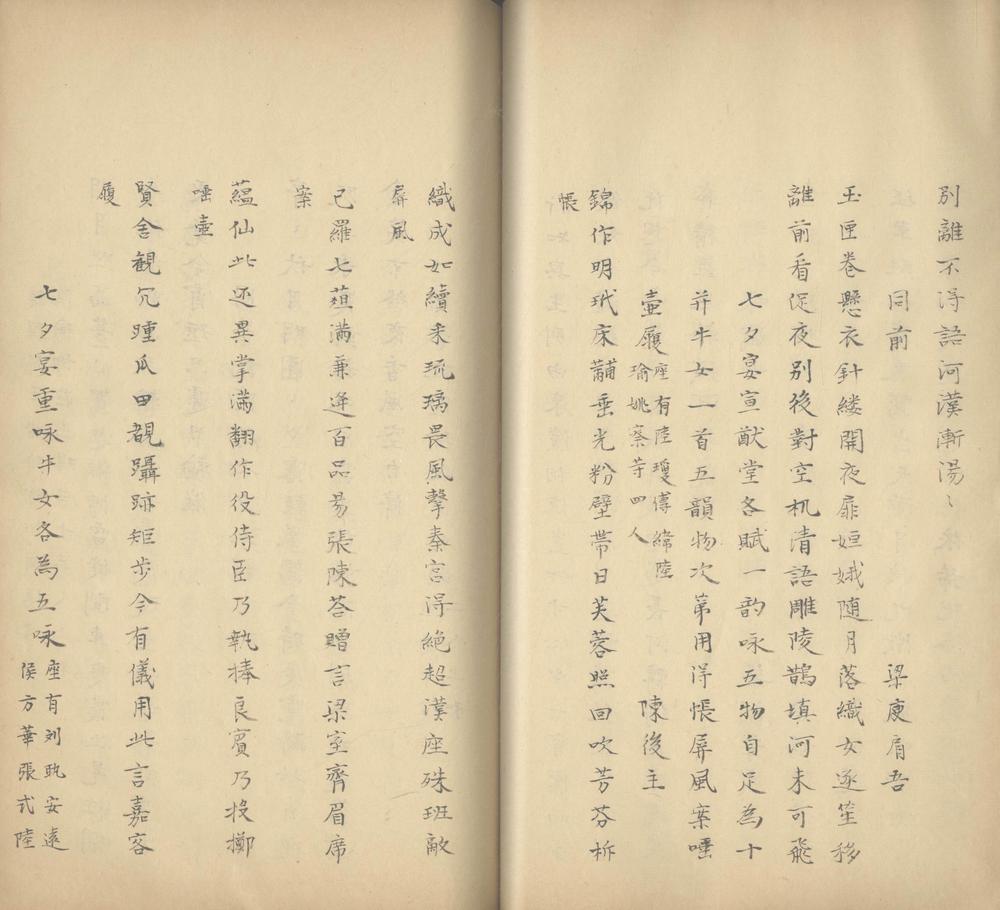 別離不得語河漢漸湯〻
同前　梁庾肩吾
玉匣卷懸衣針縷開夜扉姮娥随月落織女逐笙移
離前看促夜别後對空机清語雕陵鵲填河未可飛
七夕宴宣猷堂各賦一韵咏五物自足為十
并牛女一首五韻物次第用得帳屏風案唾
壷履座有陸瓊傅緯陸瑜姚察等四人　陳後主
錦作明玳床黼垂光粉壁帶日芙蓉照因吹芳芬柝
帳
織成如續采琉璃畏風擊秦宫得絶超漢座殊班敵
屏風
已羅七葅滿兼逆百品昜張陳荅贈言梁室齊眉席
案
蘊仙此还異掌滿翻作役侍臣乃執捧良賓乃投擲
唾壷
賢舍觀冗踵瓜田覩躡跡矩步今有儀用此言嘉客
履
七夕宴重咏牛女各為五咏座有刘㫪安遠侯方華張式陸